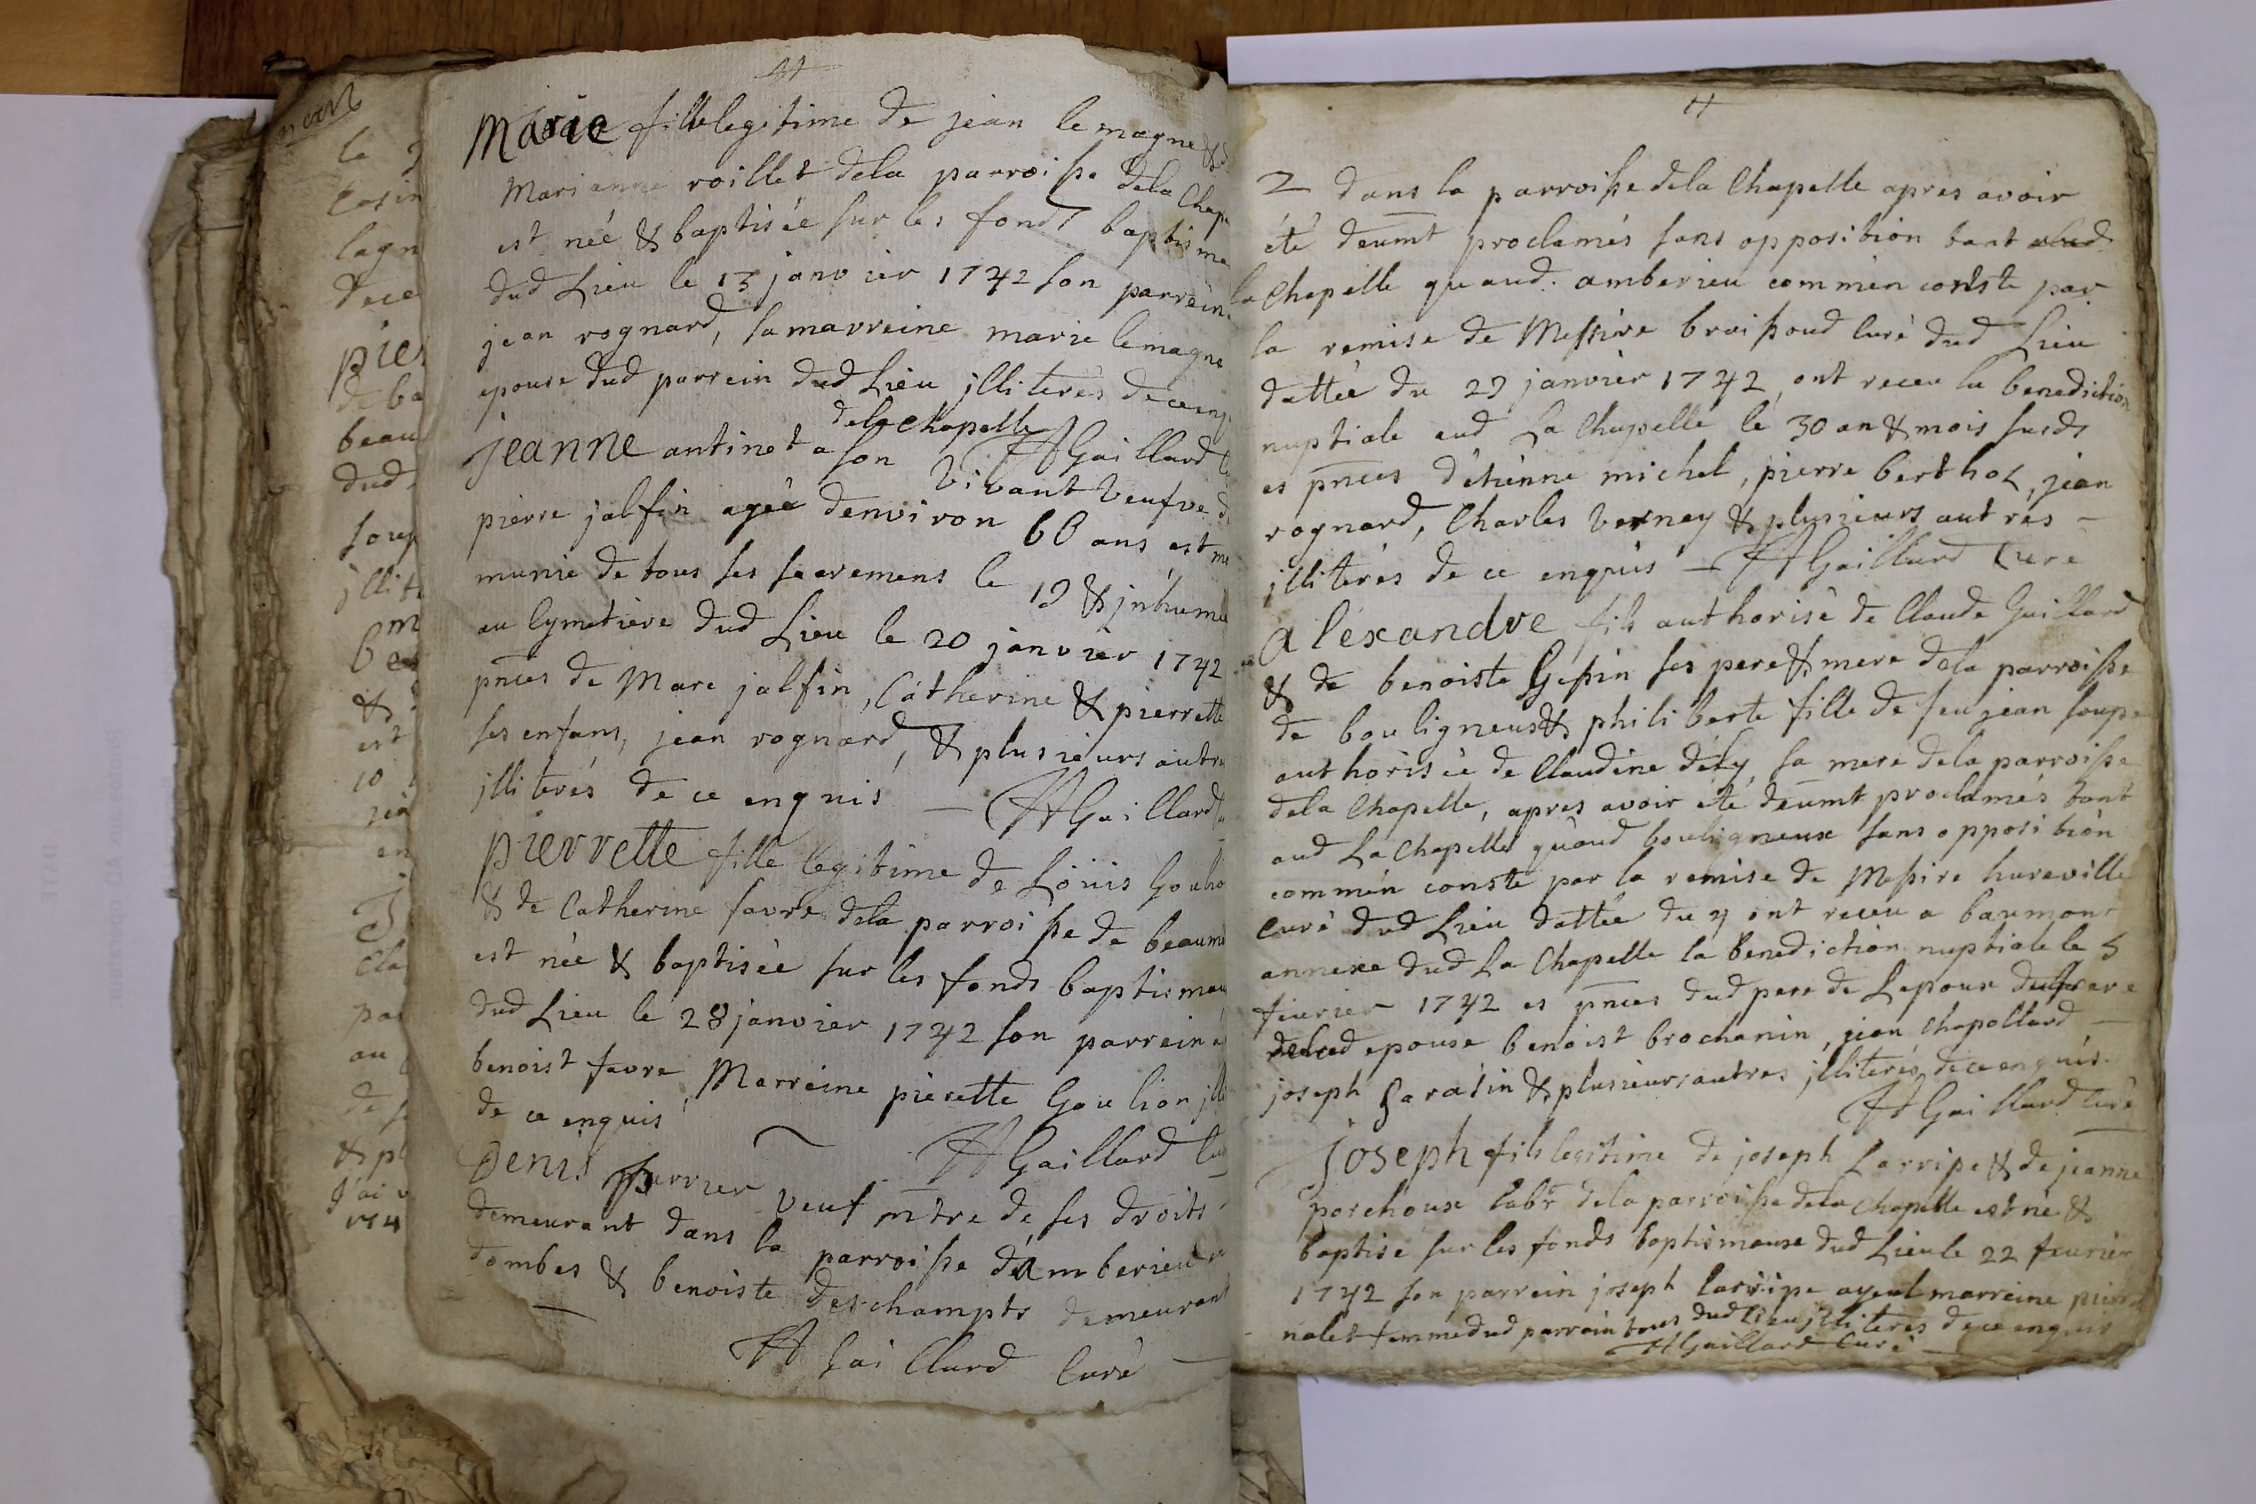 Marie fille legitime de jean lemagne &
Marianne roillet dela parroisse dela Chap
est née & baptisée sur les fonds baptisma
dud Lieu le 13 janvier 1742 son parrein
jean rognard, sa marreine marie lemagne
epouse dud parrein dud Lieu jlliterés de ce enq
dela Chapelle
jeanne antinet a son
H Gaillard
vivant veufve d
pierre jalfin agée denviron 60 ans est m
munie de tous ses sacremens le 19 & jnhumé
au Cymetiere dud Lieu le 20 janvier 1742
pñces de Marc jalfin, Catherine & pierrette
ses enfans, jean rognard, & plusieurs autr
jlliterés de ce enquis — H Gaillard
pierrette fille legitime de Loüis Goulio
& de Catherine favre dela parroisse de beaumo
est née & baptisée sur les fonds baptismau
dud Lieu le 28 janvier 1742 son parrein
benoist favre Marreine pierette Goulion jlli
de ce enquis
H Gaillard Cu
Denis purrier veuf mtre de ses droits
demeurant dans la parroisse d'Amberieu
dombes & benoiste deschamps demeurant
— H Gaillard Curé —
2 dans la parroisse dela Chapelle apres avoir
été deumt proclamés sans opposition tant
la Chapelle quaud. amberieu comm'en conste par
la remise de Messire broissoud Curé dud Lieu
dattée du 29 janvier 1742, ont receu la benediction
nuptiale aud La Chapelle le 30 an & mois susds
es pñces d'étienne michel, pierre berthol, jean
rognard, Charles Verney & plusieurs autres —
jlliterés de ce enquis — H Gaillard Curé
alexandre fils authorisé de Claude Gaillard
& de benoiste Gepin ses pere & mere dela parroisse
de bouligneux & philiberte fille de feu jean soupe
authorisée de Claudine dély, sa mere dela parroisse
dela Chapelle, apres avoir été deumt proclamés tant
aud La Chapelle qu'aud bouligneux sans opposition
comm'en conste par la remise de Messire hureville
Curé dud Lieu dattée du 4 ont receu a baumont
annexe dud La Chapelle la benediction nuptiale le 5
fevrier 1742 es pñces dud pere de Lepoux du frere
delad epouse benoist brochanin, jean Chapollard —
joseph Garatin & plusieurs autres jlliterés de ce enquis.
H Gaillard Curé
joseph fils legitime de joseph Larripe & de jeanne
porchoux labr dela parroisse dela Chapelle est né &
baptisé sur les fonds baptismaux dud Lieu le 22 fevrier
1742 son parrein joseph larripe ayeul marreine
nalet femme dud parrain tous dud Lieu jlliterés de ce enquis
H Gaillard Curé —